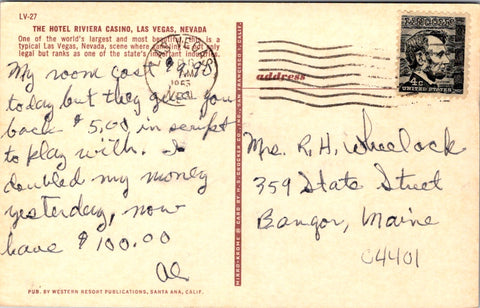 LV-27
THE HOTEL RIVIERA CASINO, LAS VEGAS, NEVADA
One of the world's largest and most beautiful, this is a
typical Las Vegas, Nevada, scene where gambling is not only
legal but ranks as one of the state's important industries.
My room cost $9.98
today but they give you
back $5.00 in script
to play with. I
doubled my money
yesterday, now
have $100.00
Al
PUB. BY WESTERN RESORT PUBLICATIONS, SANTA ANA, CALIF.
MIRRO-KROME ® CARD BY H. S. CROCKER CO., INC., SAN FRANCISCO 1, CALIF.
address
4c
UNITED STATES
Mrs. R. H. Wheelock
359 State Street
Bangor, Maine
04401